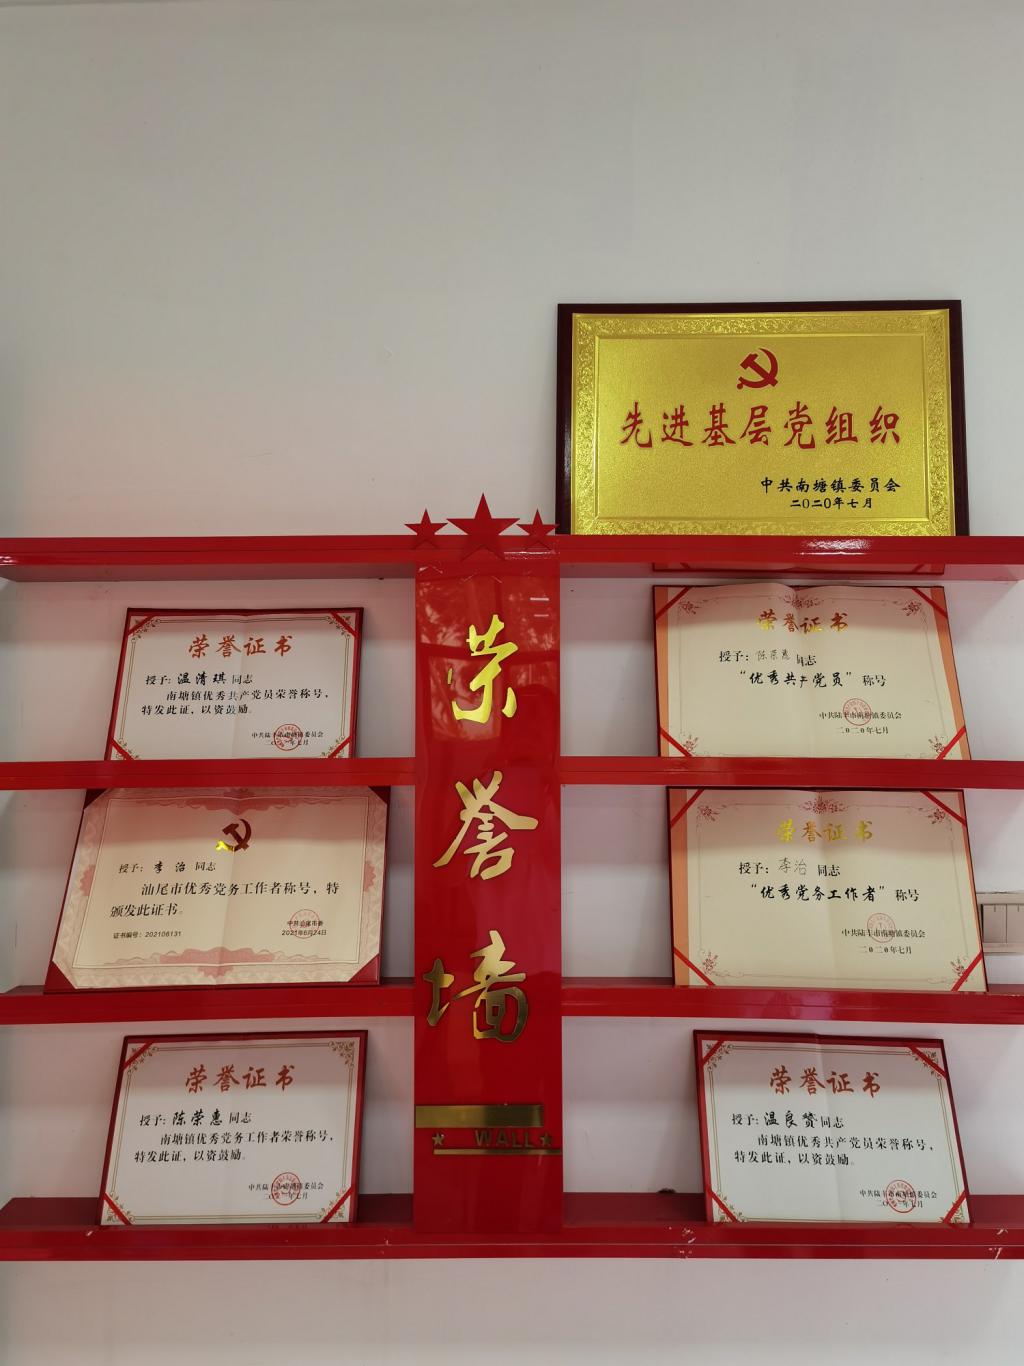 先进基层党组织
中共南塘镇委员会
二〇二〇年七月
荣誉墙
WALL
荣誉证书
授予：温清琪同志
南塘镇优秀共产党员荣誉称号，
特发此证，以资鼓励。
中共陆丰市南塘镇委员会
二〇二一年七月
荣誉证书
授予：陈荣惠同志
“优秀共产党员”称号
中共陆丰市南塘镇委员会
二〇二〇年七月
授予：李治同志
汕尾市优秀党务工作者称号，特
颁发此证书。
中共汕尾市委
证书编号：202106131
2021年6月24日
荣誉证书
授予：李治同志
“优秀党务工作者”称号
中共陆丰市南塘镇委员会
二〇二〇年七月
荣誉证书
授予：陈荣惠同志
南塘镇优秀党务工作者荣誉称号，
特发此证，以资鼓励。
中共陆丰市南塘镇委员会
二〇二一年七月
荣誉证书
授予：温良赞同志
南塘镇优秀共产党员荣誉称号，
特发此证，以资鼓励。
中共陆丰市南塘镇委员会
二〇二一年七月